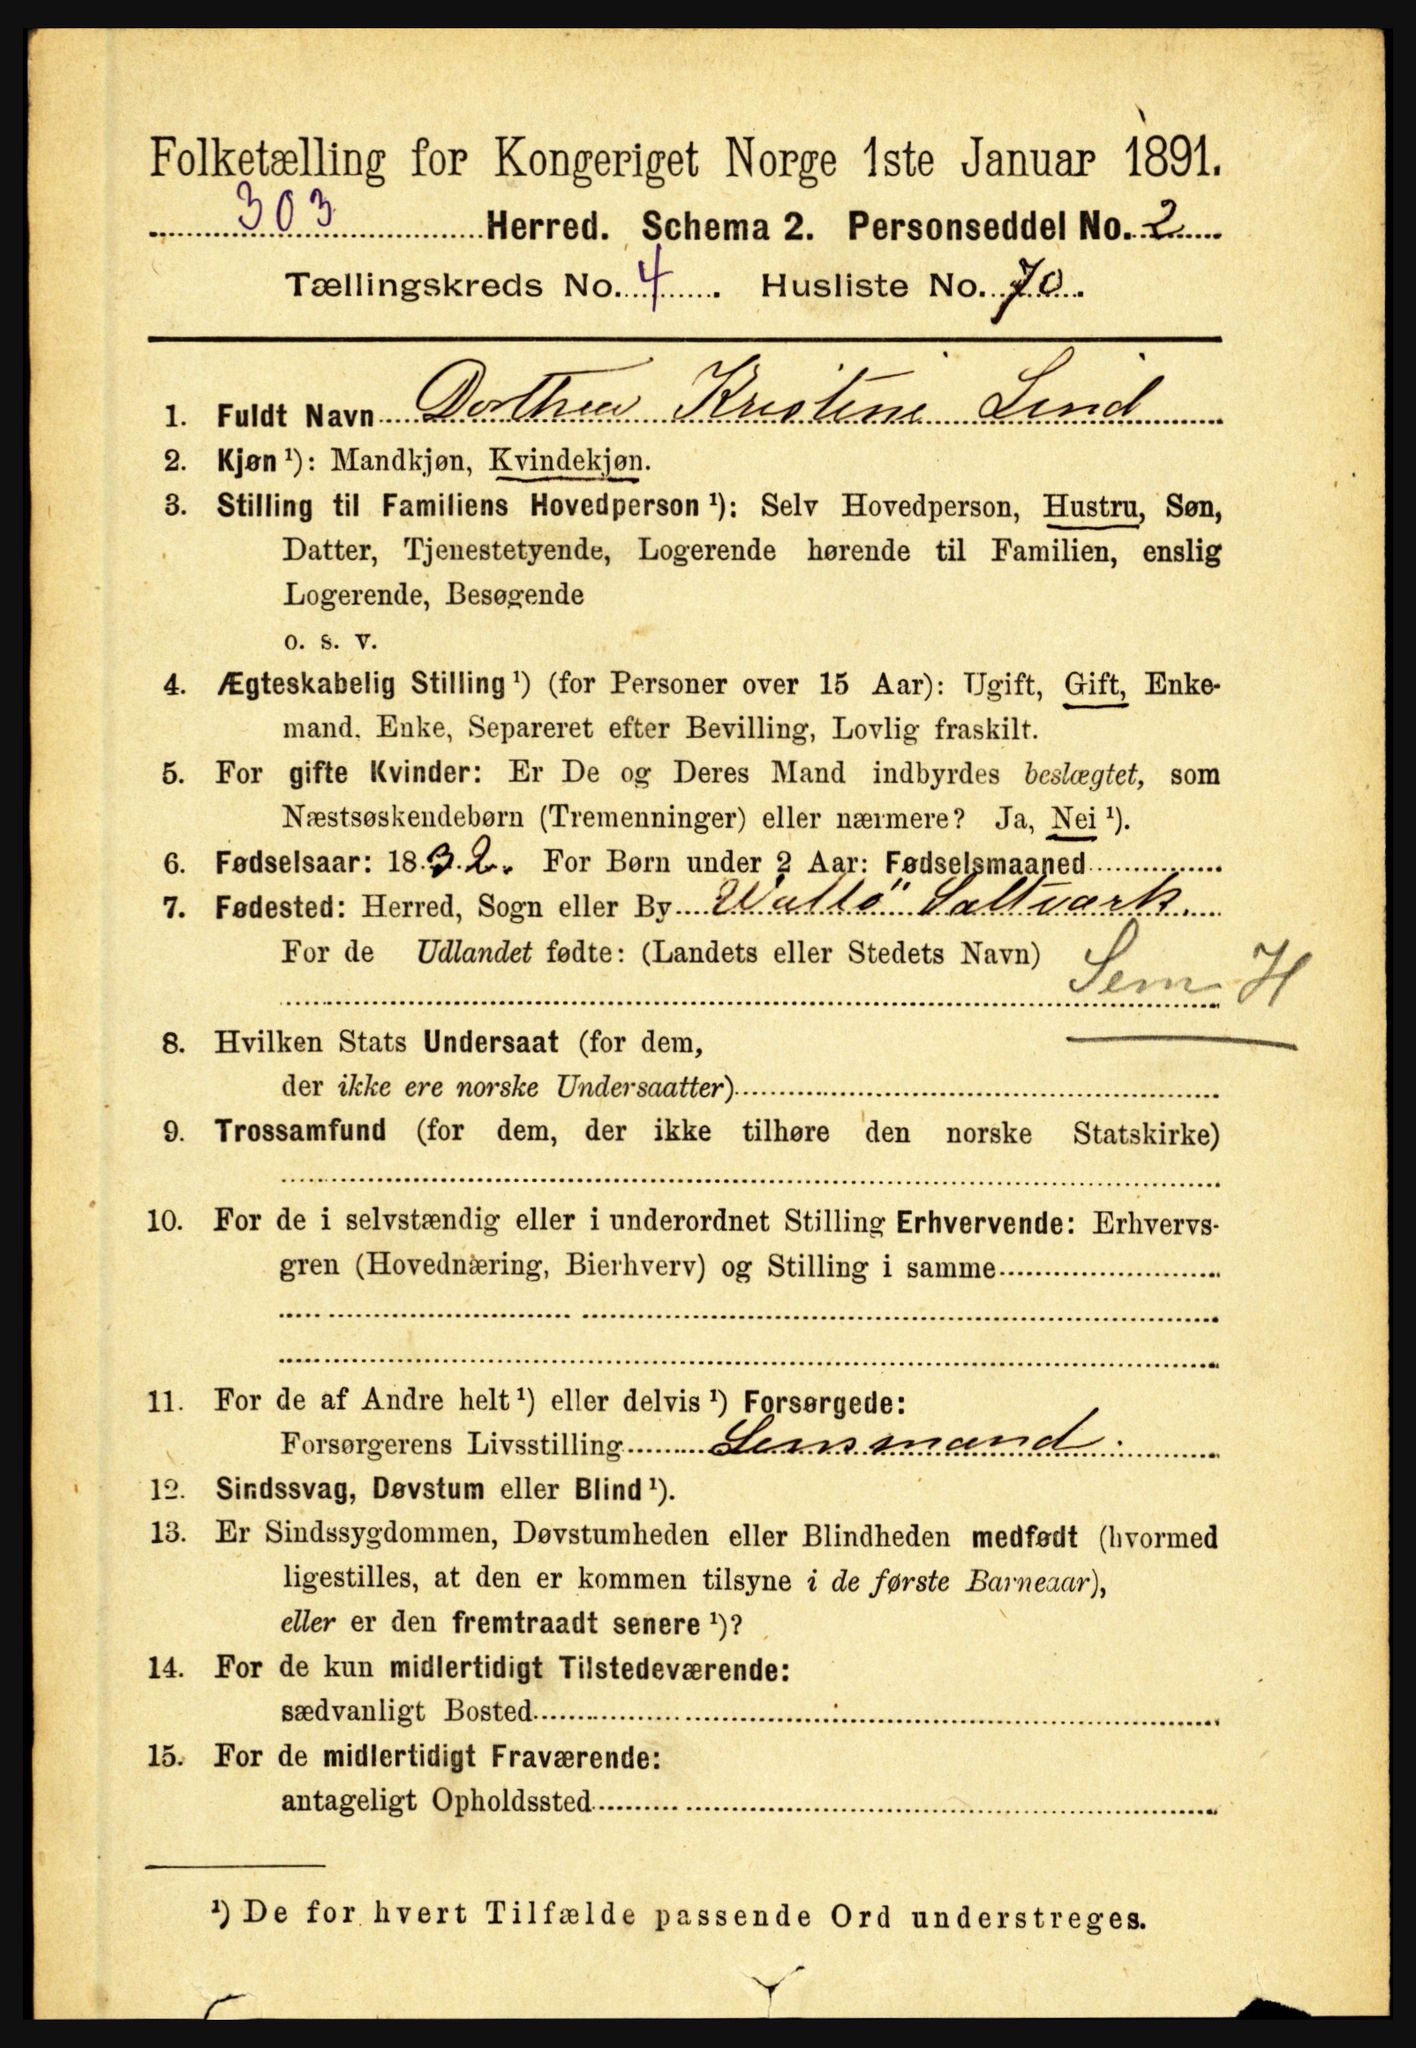 Folketælling for Kongeriget Norge 1ste Januar 1891.
303 Herred. Schema 2. Personseddel No. 2
Tællingskreds No. 4. Husliste No. 70.
1. Fuldt Navn Dorthea Kristine Lind
2. Kjøn ¹): Mandkjøn, Kvindekjøn.
3. Stilling til Familiens Hovedperson ¹): Selv Hovedperson, Hustru, Søn,
Datter, Tjenestetyende, Logerende hørende til Familien, enslig
Logerende, Besøgende
o. s. v.
4. Ægteskabelig Stilling ¹) (for Personer over 15 Aar): Ugift, Gift, Enke-
mand, Enke, Separeret efter Bevilling, Lovlig fraskilt.
5. For gifte Kvinder: Er De og Deres Mand indbyrdes beslægtet, som
Næstsøskendebørn (Tremenninger) eller nærmere? Ja, Nei ¹).
6. Fødselsaar: 1832. For Børn under 2 Aar: Fødselsmaaned
7. Fødested: Herred, Sogn eller By Wallö Saltværk.
For de Udlandet fødte: (Landets eller Stedets Navn)
Sem H
8. Hvilken Stats Undersaat (for dem,
der ikke ere norske Undersaatter)
9. Trossamfund (for dem, der ikke tilhøre den norske Statskirke)
10. For de i selvstændig eller i underordnet Stilling Erhvervende: Erhvervs-
gren (Hovednæring, Bierhverv) og Stilling i samme
11. For de af Andre helt ¹) eller delvis ¹) Forsørgede:
Forsørgerens Livsstilling Lensmand.
12. Sindssvag, Døvstum eller Blind ¹).
13. Er Sindssygdommen, Døvstumheden eller Blindheden medfødt (hvormed
ligestilles, at den er kommen tilsyne i de første Barneaar),
eller er den fremtraadt senere ¹)?
14. For de kun midlertidigt Tilstedeværende:
sædvanligt Bosted
15. For de midlertidigt Fraværende:
antageligt Opholdssted
¹) De for hvert Tilfælde passende Ord understreges.